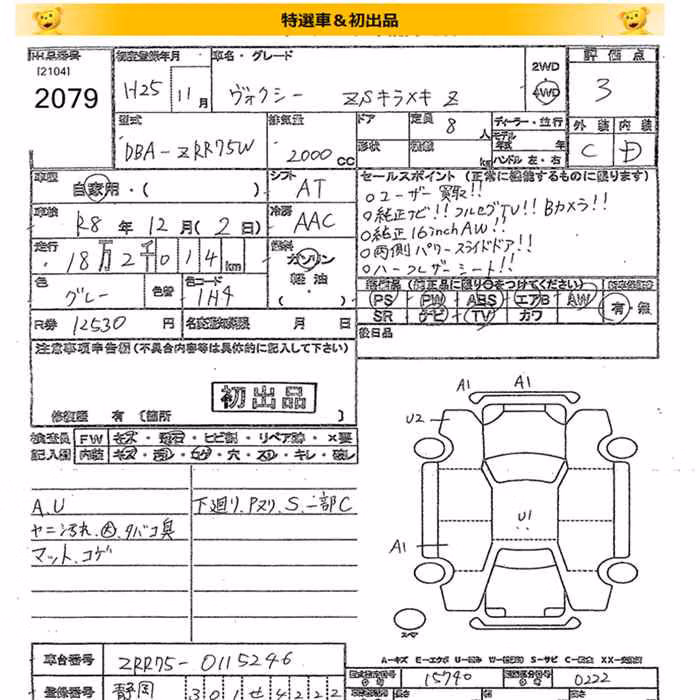 特選車＆初出品
出品番号
[2104]
2079
初度登録年月
H25 11月
車名・グレード
ヴォクシー ZSキラメキ Z
2WD
4WD
評価点
3
外装 内装
C D
型式
DBA-ZRR75W
排気量
2000cc
ドア
形状
定員 8 人
積載 kg
ディーラー・並行
モデル
年式 年
ハンドル 左・右
車歴
自家用・( )
シフト
AT
車検
R8年 12月(2日)
冷房
AAC
走行
18万2千014km
燃料
ガソリン・
軽油・
( )
色
グレー
色替
色コード
1H4
R券 12530円
名変期限 月 日
セールスポイント (正常に機能するものに限ります)
○ユーザー買取!!
○純正ナビ!! フルセグTV!! Bカメラ!!
○純正16inchAW!!
○両側パワースライドドア!!
○ハーフレザーシート!!
PS PW ABS エアB AW
SR ナビ TV カワ
有・無
後日品
注意事項申告欄 (不具合内容等は具体的に記入して下さい)
初出品
修復歴 有 [箇所 ]
検査員 FW キズ・飛石・ヒビ割・リペア跡・×要
記入欄 内装 キズ・汚れ・コゲ・穴・スリ・キレ・破レ
A.U
ヤニ汚れ.因.タバコ臭
マット.コゲ
下廻り.Pヌリ.S.一部C
A1 A1
U2
U1
A1
スペア
A-キズ E-エクボ U-凹み W-補修跡 S-サビ C-腐食 XX-交換済
車台番号
ZRR75-0115246
型式指定番号 15740 類別区分番号 0222
登録番号
静岡 301せ4222